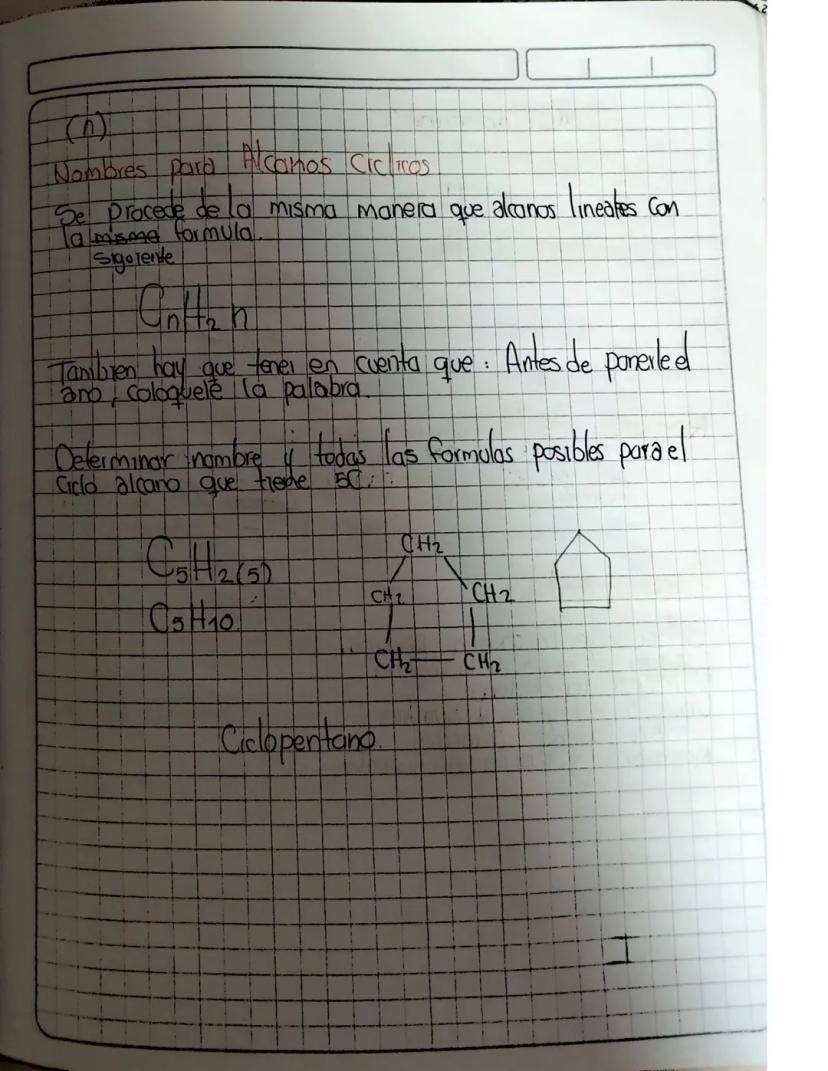 (n)
Nombres para Alcanos Ciclicos
Se Procede de la misma manera que alcanos lineales con
la misma formula.
sigoiente
CnH2n
Tambien hay que tener en cuenta que: Antes de ponerle el
ano, coloquele la palabra.
Determinar nombre y todas las formulas posibles para el
Ciclo alcano que tiene 5C:
C5H2(5)
C5H10
CH2
CH2 CH2
CH2 CH2
Ciclopentano.